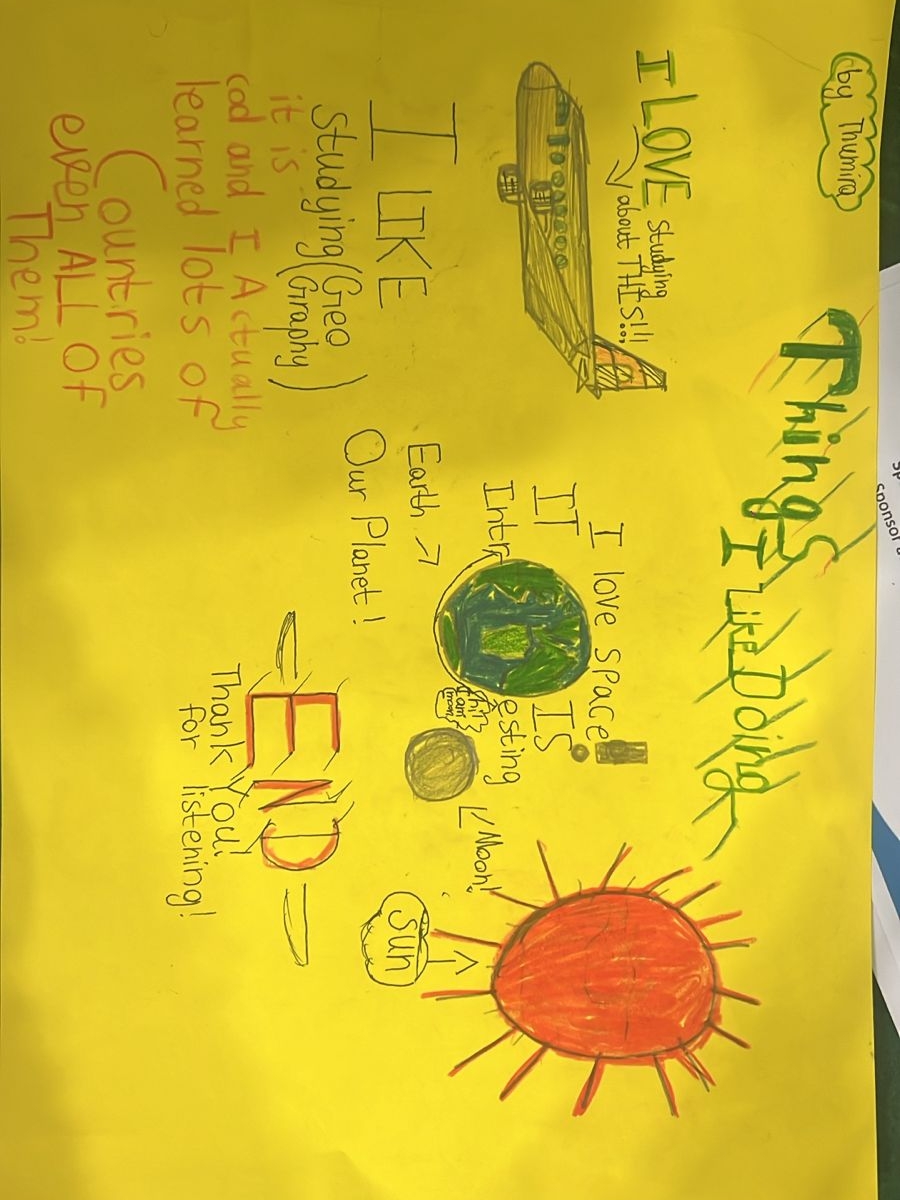 by Thumira
Things
I Like Doing
I LOVE studying
about THIS!!!
I LIKE
Studying (Geo
Graphy)
it is
cool and I Actually
learned lots of
Countries
even ALL OF
Them!
I love space!
IT IS
Intresting
Earth ->
Our Planet!
hi!
I am
moon
<- Moon!
Sun
END
Thank You!
for listening!
sponsor